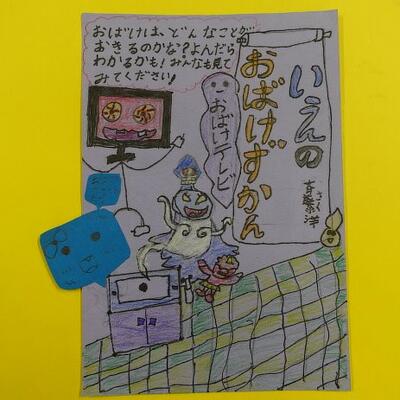 おばけは、どんなことが
おきるのかな?よんだら
わかるかも!みんなも見て
みてください!
いえの
おばけずかん
さく
斉藤洋
おばけテレビ